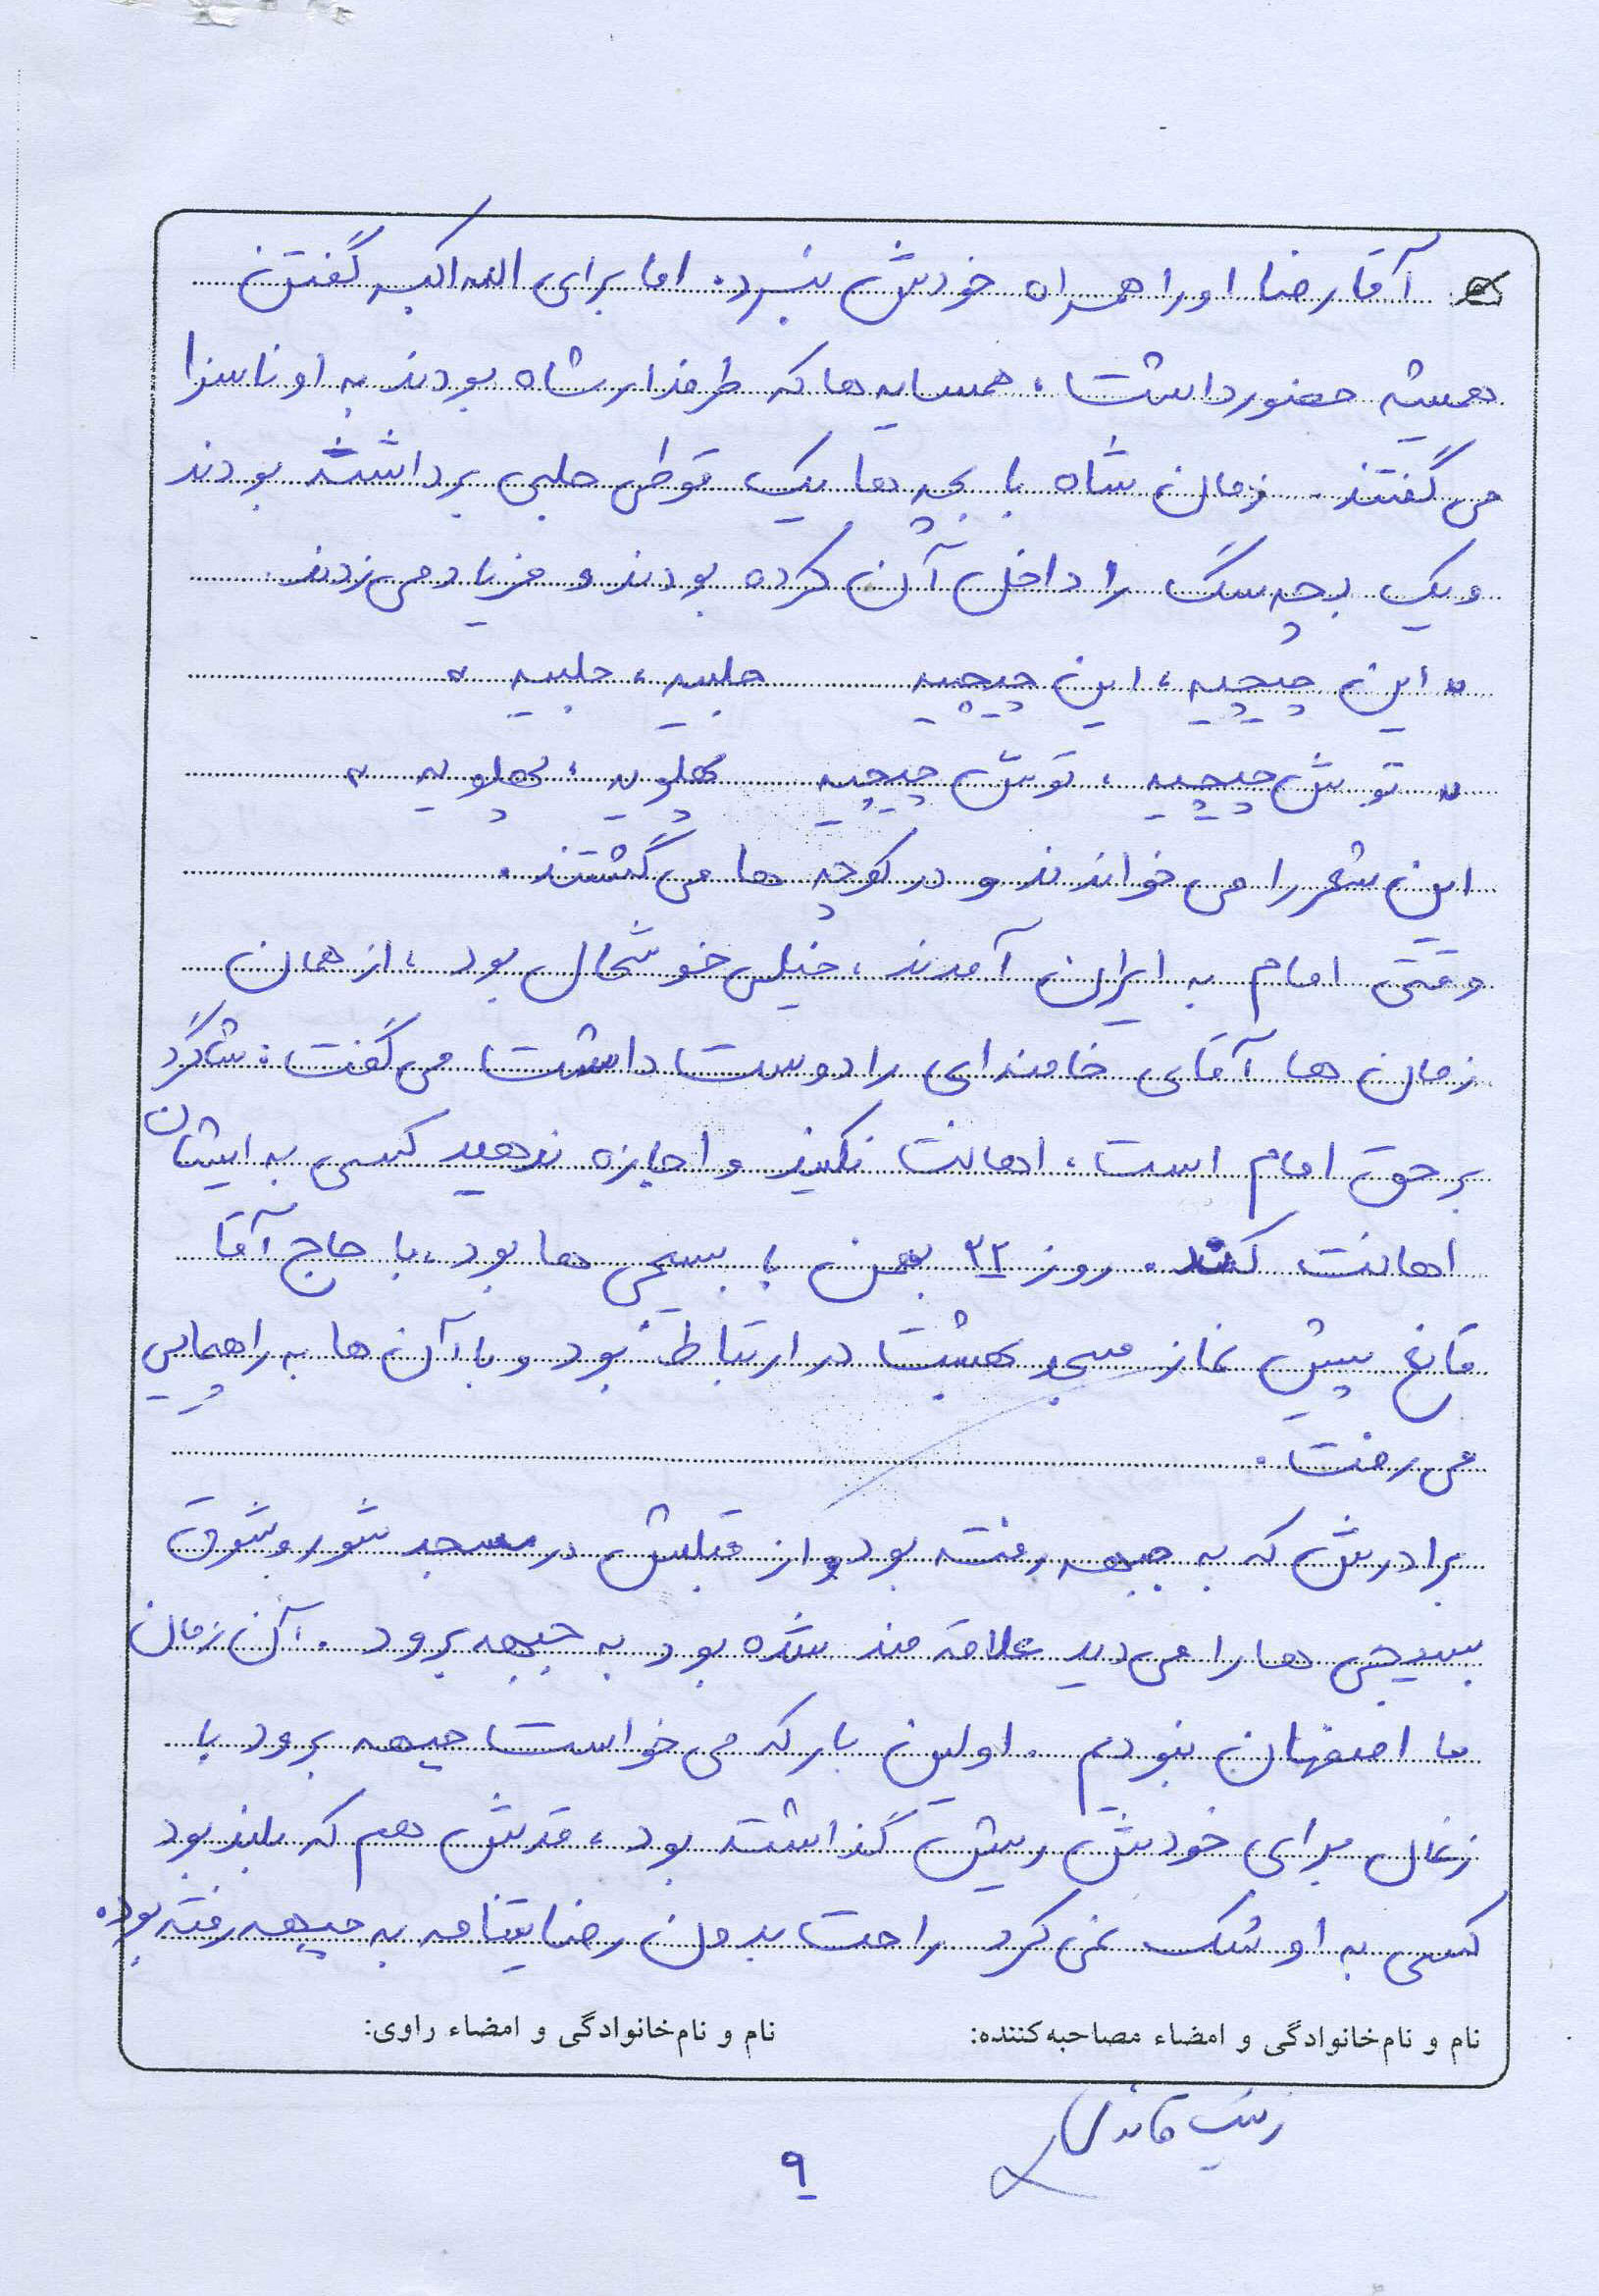 آقا رضا او را همراه خودش نبرد. اما برای الله اکبر گفتن
همیشه حضور داشت، همسایه ها که طرفدار شاه بودند به او ناسزا
می گفتند. زمان شاه با بچه ها یک قوطی حلبی برداشته بودند
و یک بچه سگ را داخل آن کرده بودند و فریاد می زدند
" این چیچیه، این چیچیه حلبیه، حلبیه "
" توش چیچیه، توش چیچیه پهلویه، پهلویه "
این شعر را می خواندند و در کوچه ها می گشتند.
وقتی امام به ایران آمدند، خیلی خوشحال بود، از همان
زمان ها آقای خامنه‌ای را دوست داشت می گفت: شاگرد
بر حق امام است، اهانت نکنید و اجازه ندهید کسی به ایشان
اهانت کند. روز ۲۲ بهمن با بسیجی ها بود، با حاج آقا
قانع پیش نماز مسجد بهشت در ارتباط بود و با آن ها به راهپیمایی
می رفت.
برادرش که به جبهه رفته بود و از قبلش در مسجد شور و شوق
بسیجی ها را می دید علاقه مند شده بود به جبهه برود. آن زمان
ما اصفهان نبودیم. اولین بار که می خواست جبهه برود با
زغال برای خودش ریش گذاشته بود، قدش هم که بلند بود
کسی به او شک نمی کرد راحت بدون رضایتنامه به جبهه رفته بود.
نام و نام‌خانوادگی و امضاء مصاحبه‌کننده: نام و نام‌خانوادگی و امضاء راوی:
زینب
۹